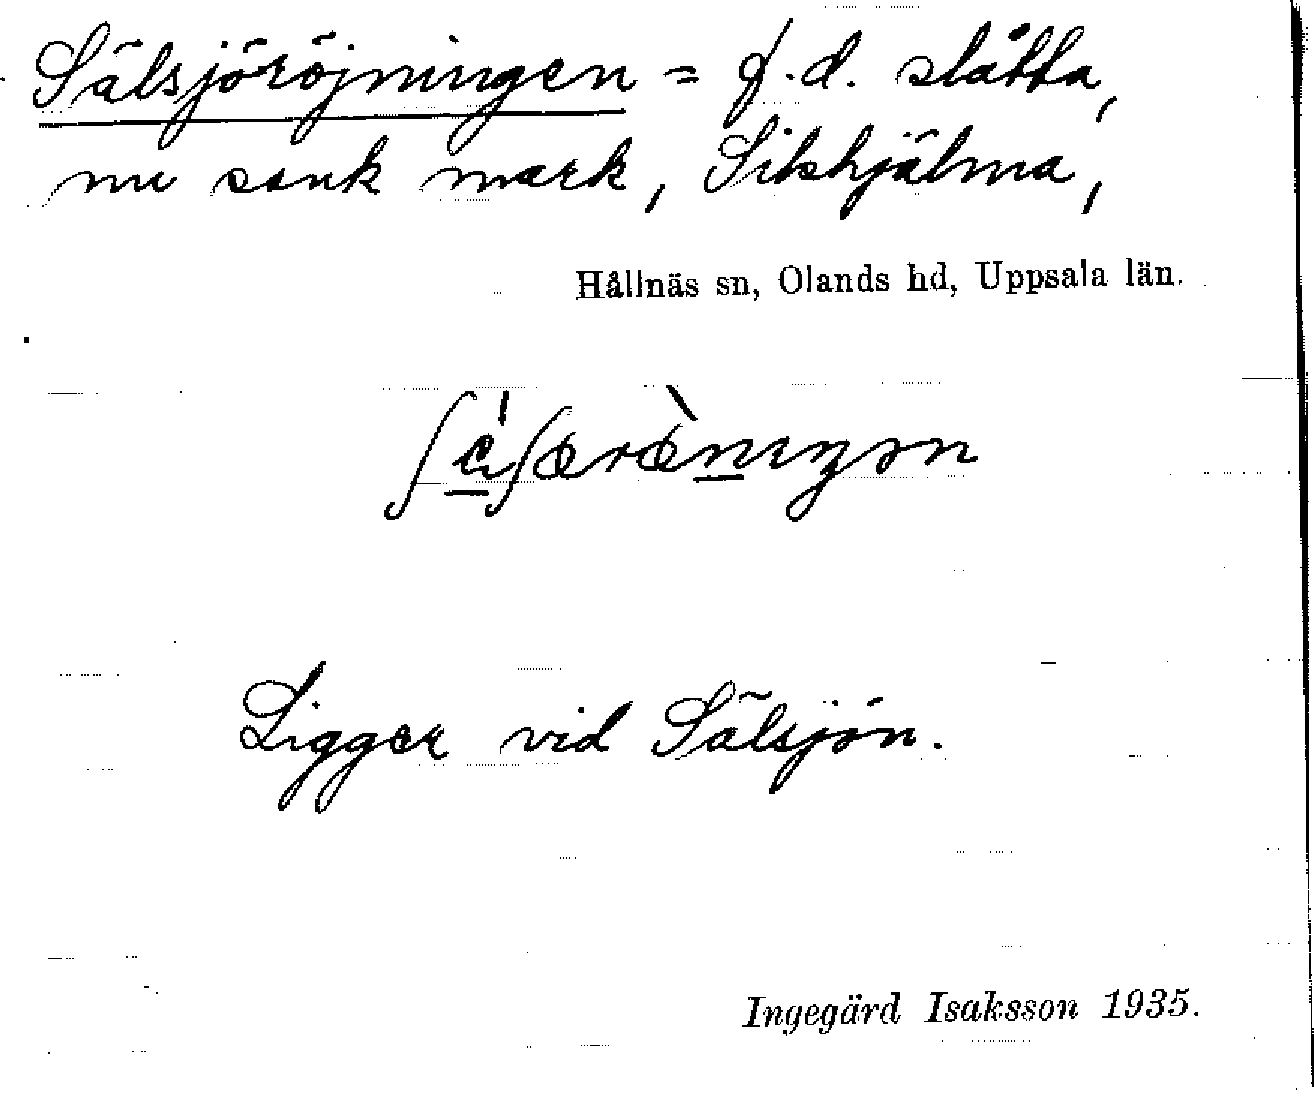 Sälsjöröjningen = f.d. slåtta,
nu sank mark, Silshjälma,
Hållnäs sn, Olands hd, Uppsala län.
Ligger vid Sälsjön.
Ingegärd Isaksson 1935.